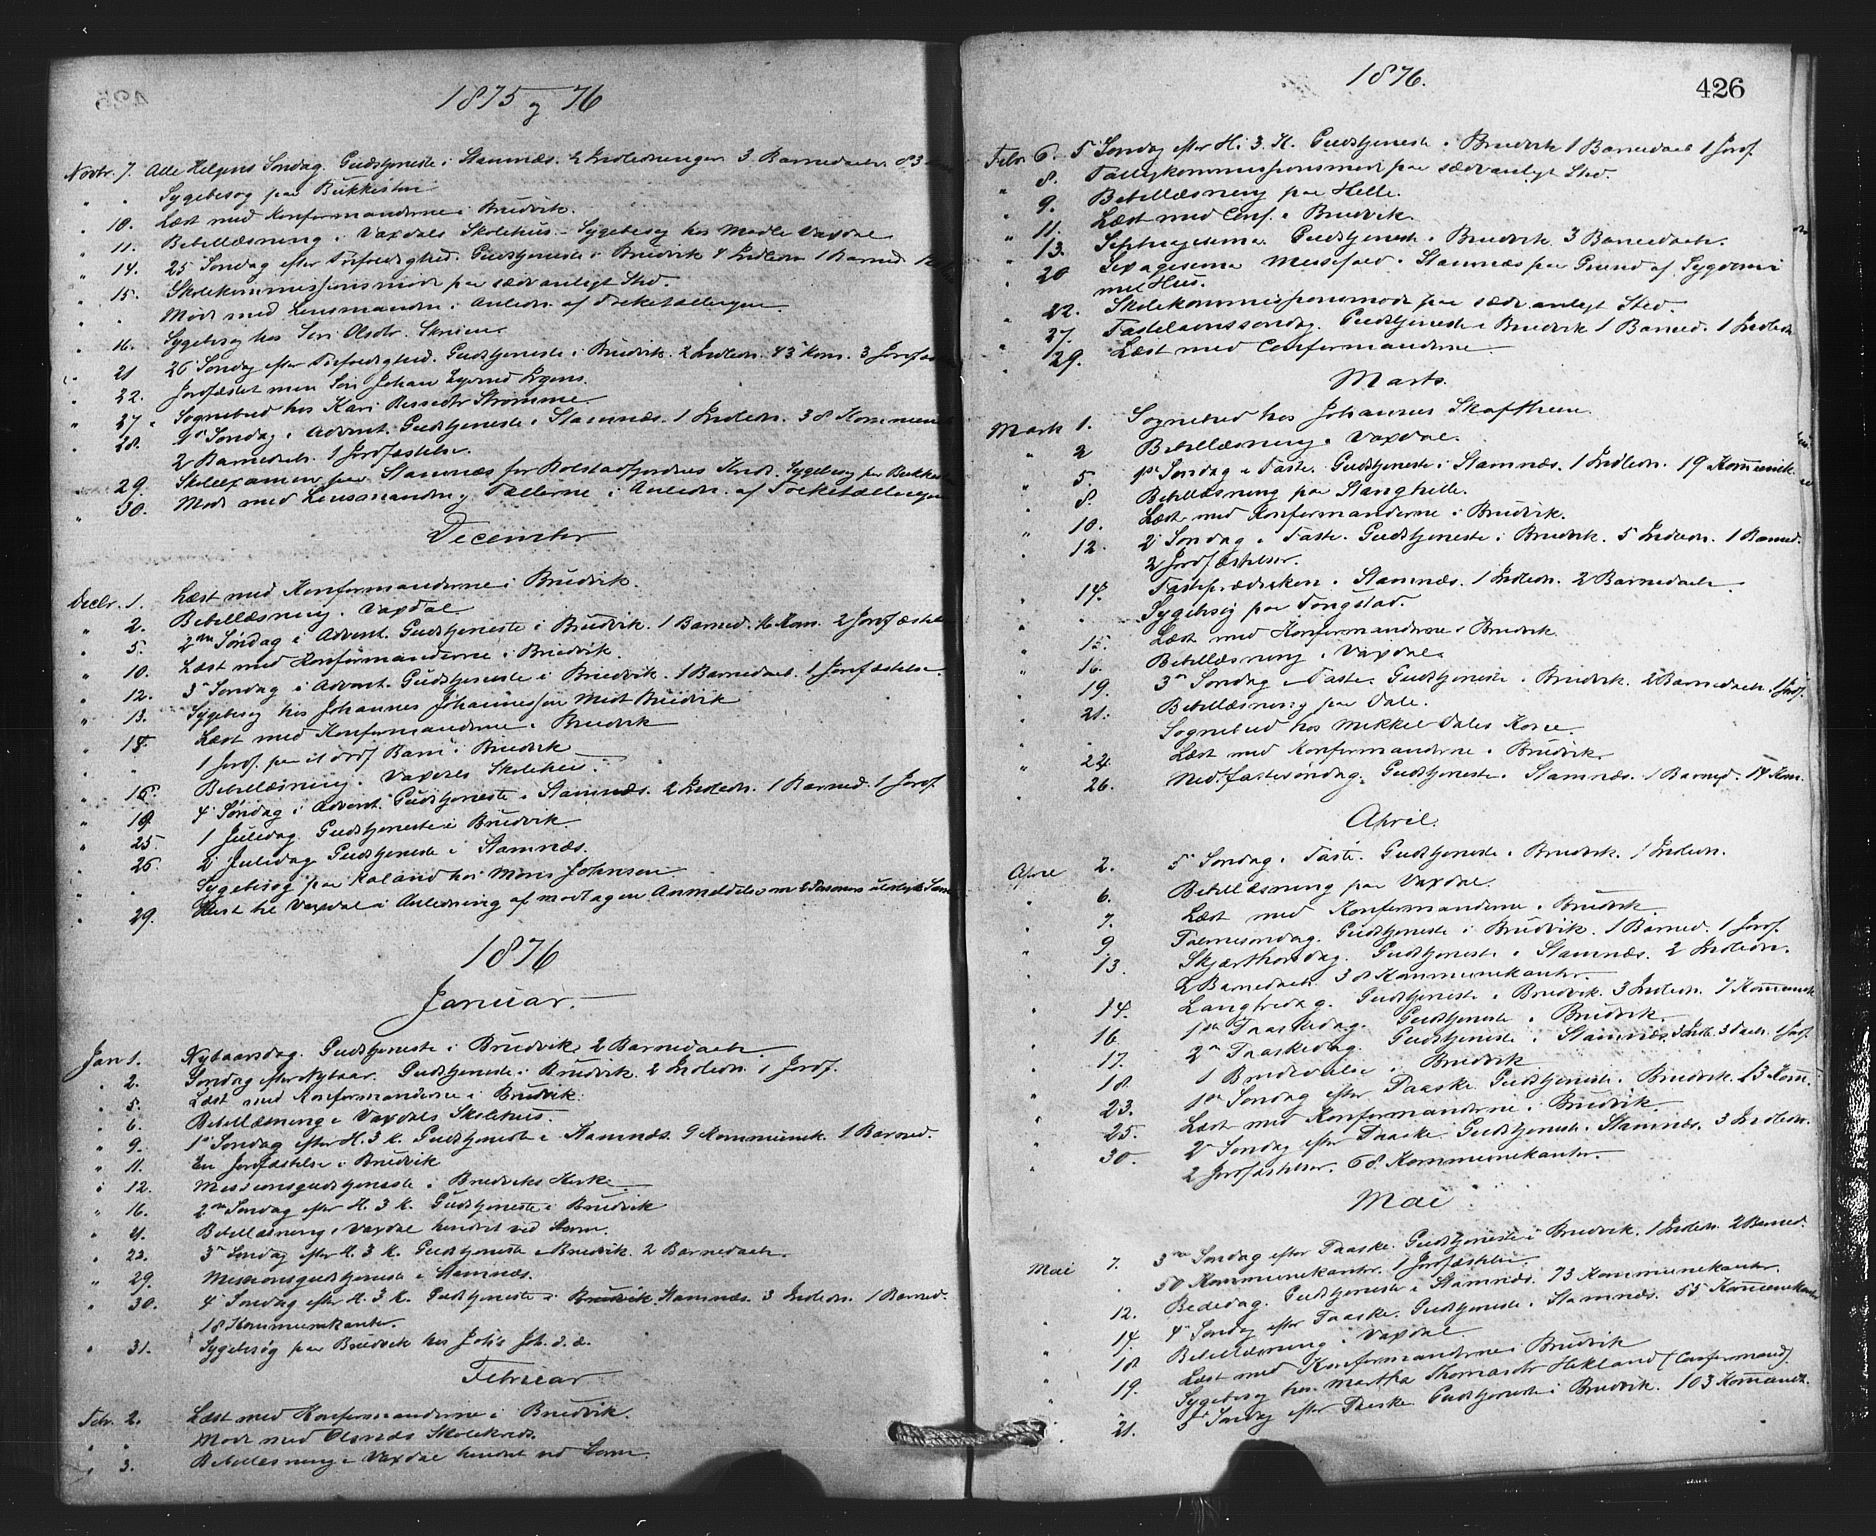 1875 og 76
Novbr. 7. Alle Helgens Søndag. Gudstjeneste i Stamnæs. 2 Indledninger 3 Barnedaab. 83
" " Sygebesøg paa
" 10. Læst med Konfirmanderne i Bruvik.
" 11. Bibellæsning i Vaxdals Skolehus. Sygebesøg hos Vaxdal
" 14. 25 Søndag efter Trefoldighed. Gudstjeneste i Bruvik 4 Indledn 1 Barned
" 15. Skolekommissionsmøde paa sædvanligt Sted.
" " Møde med Lensmanden i Anledn. af Folketællingen
" 16. Sygebesøg hos Olsdtr.
" 21 26 Søndag efter Trefoldighed. Gudstjeneste i Bruvik. 2 Indledn. 43 Kom. 3 Jordfæst
" 22. Jordfæstet Johan
" 27 " Sognebud hos Kari Strømme
" 28. 1ste Søndag i Advent. Gudstjeneste i Stamnæs. 1 Indledn. 38 Kommunik
2 Barnedaab. 1 Jordfæstelse.
" 29. Skoleexamen paa Stamnæs for Bolstadfjordens Kreds. Sygebesøg paa
" 30. Møde med Lensmanden og Tællerne i Anledn. af Folketællingen
December
Decbr. 1. Læst med Konfirmanderne i Bruvik.
" 2. Bibellæsning i Vaxdal
" 5. 2den Søndag i Advent. Gudstjeneste i Bruvik. 1 Barned. 16 Kom. 2 Jordfæstels
" 10. Læst med Konfirmanderne i Bruvik.
" 12. 3 Søndag i Advent. Gudstjeneste i Bruvik. 1 Barnedaab. 1 Jordfæstelse.
" 13. Sygebesøg hos Johannes Johannessen Bruvik
" 18. Læst med Konfirmanderne i Bruvik
" " 1 Jordf. paa et Barn i Bruvik
" 16. Bibellæsning i Vaxdals Skolehus.
" 19. 4 Søndag i Advent. Gudstjeneste i Stamnæs. 2 Indledn. 1 Barned. 1 Jordf.
" 25. 1 Juledag. Gudstjeneste i Bruvik.
" 26. 2 Juledag Gudstjeneste i Stamnæs.
" " Sygebesøg paa Kaland hos Mons Johnsen
" 29. Reist til Vaxdal i Anledning af modtagen Anmeldelse om 2 Personers
1876
Januar.
Jan 1. Nytaarsdag. Gudstjeneste i Bruvik 2 Barnedaab.
" 2. Søndag efter Nytaar. Gudstjeneste i Bruvik. 2 Indledn. 1 Jordf.
" 5. Læst med Konfirmanderne i Bruvik.
" 6. Bibellæsning i Vaxdals Skolehus.
" 9. 1 Søndag efter H. 3 K. Gudstjeneste i Stamnæs. 9 Kommunik. 1 Barned.
" 11. En Jordfæstelse i Bruvik
" 12. Missionsgudstjeneste i Bruviks Kirke
" 16. 2den Søndag efter H. 3 K. Gudstjeneste i Bruvik
" 21. Bibellæsning i Vaxdal hindret ved Storm.
" 23. 3 Søndag efter H. 3 K. Gudstjeneste i Bruvik. 2 Barnedaab.
" 29. Missionsgudstjeneste i Stamnæs.
" 30. 4 Søndag efter H. 3 K. Gudstjeneste i Bruvik Stamnæs. 3 Indledn. 1 Barned.
18 Kommunikanter.
" 31. Sygebesøg paa Bruvik hos Joh's Joh. s. æ.
Februar
Febr. 2. Læst med Konfirmanderne i Bruvik.
" " Møde med Skolekreds.
" 3. Bibellæsning i Vaxdal hindret ved Storm
1876.
426
Febr 6. 5 Søndag efter H. 3. K. Gudstjeneste i Bruvik 1 Barnedaab 1 Jordf.
" 8. Fattigkommissionsmøde paa sædvanligt Sted.
" 9. Bibellæsning paa Helle.
" 11. Læst med Conf. i Bruvik.
" 13. Septuagesima. Gudstjeneste i Bruvik. 3 Barnedaab.
" 20 Sexagesima Messefald i Stamnæs paa Grund af Sygdom i
mit Hus.
" 22. Skolekommissionsmøde paa sædvanligt Sted.
" 27. Fastelavnssøndag. Gudstjeneste i Bruvik 1 Barned. 1 Indledn
" 29. Læst med Confirmanderne.
Marts.
Marts 1. Sognebud hos Johannes Skaftheim.
" 2 Bibellæsning i Vaxdal.
" 5. 1ste Søndag i Faste. Gudstjeneste i Stamnæs. 1 Indledn. 19 Kommunik
" 8. Bibellæsning paa Stanghelle.
" 10. Læst med Konfirmanderne i Bruvik.
" 12. 2 Søndag i Faste. Gudstjeneste i Bruvik. 5 Indledn. 1 Barned.
2 Jordfæstelser.
" 14. Fasteprædiken i Stamnæs. 1 Indledn. 2 Barnedaab.
" " Sygebesøg paa Fongstad.
" 15. Læst med Konfirmanderne i Bruvik
" 16. Bibellæsning i Vaxdal
" 19. 3 Søndag i Faste. Gudstjeneste i Bruvik. 2 Barnedaab. 1 Jordf.
" 21. Bibellæsning paa Dale.
" " Sognebud hos Mikkel Dales Kone.
" 24. Læst med Konfirmanderne i Bruvik.
" 26. Midfastesøndag. Gudstjeneste i Stamnæs. 1 Barned. 14 Kom.
April.
April 2. 5 Søndag i Faste. Gudstjeneste i Bruvik. 1 Indledn.
" 6. Bibellæsning paa Vaxdal.
" 7. Læst med Konfirmanderne i Bruvik.
" 9. Palmesøndag. Gudstjeneste i Bruvik. 1 Barned. 1 Jordf.
" 13. Skjærthorsdag. Gudstjeneste i Stamnæs. 2 Indledn.
2 Barnedaab. 38 Kommunikanter.
" 14. Langfredag. Gudstjeneste i Bruvik. 3 Indledn. 7 Kommunik
" 16. 1ste Paaskedag. Gudstjeneste i Bruvik.
" 17. 2 Paaskedag. Gudstjeneste i Stamnæs. 3 Daab. 1 Jordf
" 18. 1 Brudevielse i Bruvik
" 23. 1ste Søndag efter Paaske. Gudstjeneste i Bruvik. 23 Komm.
" 25. Læst med Konfirmanderne i Bruvik.
" 30. 2 Søndag efter Paaske. Gudstjeneste i Stamnæs. 3 Indledn.
2 Jordfæstelser. 68 Kommunikanter.
Mai
Mai 7. 3die Søndag efter Paaske. Gudstjeneste i Bruvik. 1 Indledn. 2 Barned.
50 Kommunikanter. 1 Jordfæstelse.
" 12. Bededag. Gudstjeneste i Stamnæs. 73 Kommunikanter.
" 14. 4 Søndag efter Paaske. Gudstjeneste i Stamnæs. 55 Kommunikanter
" 18 Bibellæsning i Vaxdal.
" 19. Læst med Konfirmanderne i Bruvik
" " Sygebesøg hos Martha Thomasdtr Hekland (Confirmand).
" 21. 5 Søndag efter Paaske Gudstjeneste i Bruvik. 103 Kommunik.